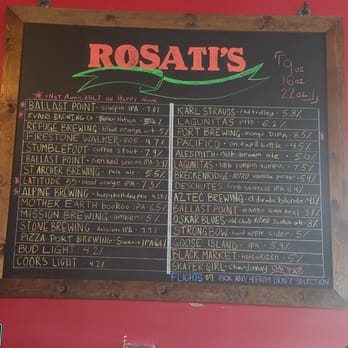 ROSATI'S
9oz
16oz
22oz!
*NOT AVAILABLE ON HAPPY HOUR
*BALLAST POINT - sculpin IPA - 7.0%
EVANS BREWING Co.
REFUGE BREWING - blood orange wit 5%
FIRESTONE WALKER - 805 4.7%
STUMBLEFOOT - coffee stout 7.
BALLAST POINT - even keel session IPA 3.
ST ARCHER BREWING - pale ale 5.5%
*LATITUDE 33 - blood orange IPA 7.3%
*ALPINE BREWING -
MOTHER EARTH Bookoo IPA 6.5%
MISSION BREWING - amber 5%
STONE BREWING - delicious IPA 7.7%
PIZZA PORT BREWING -
BUD LIGHT 4.2%
COORS LIGHT 4.2%
KARL STRAUSS - red trolley 5.8%
LAGUNITAS pils 6.2%
PORT BREWING - mango DIPA 8.5%
PACIFICO - on tap bottle 4.5%
ALESMITH - nut brown ale 5.0%
LAGUNITAS - little sumpin sumpin
BRECKENRIDGE - NITRO vanilla porter
DESCHUTES - fresh squeezed IPA 6.4%
AZTEC BREWING - eldorado blonde
BALLAST POINT - mango even keel 3.8%
OSKAR BLUES - old chub NITRO scotch ale 8%
STRONGBOW - hard apple cider 5%
GOOSE ISLAND - IPA 5.9%
BLACK MARKET - hefeweizen - 5%
SKATER GIRL - chardonnay ON TAP
FLIGHTS $9 PICK ANY 4 FROM DRAFT SELECTION